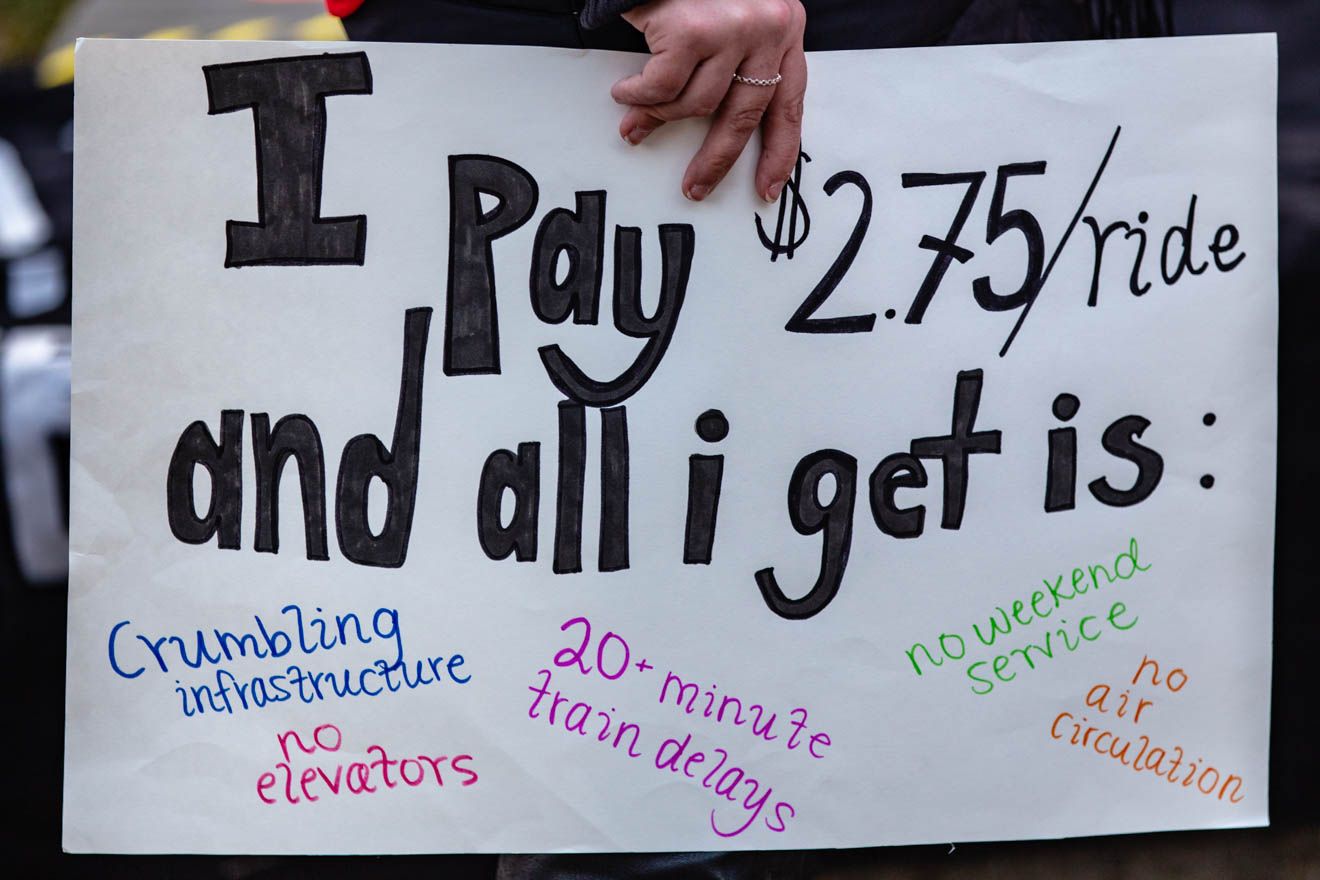 I Pay $2.75/ride
and all i get is:
Crumbling
infrastructure
no
elevators
20+ minute
train delays
no weekend
service
no
air
circulation